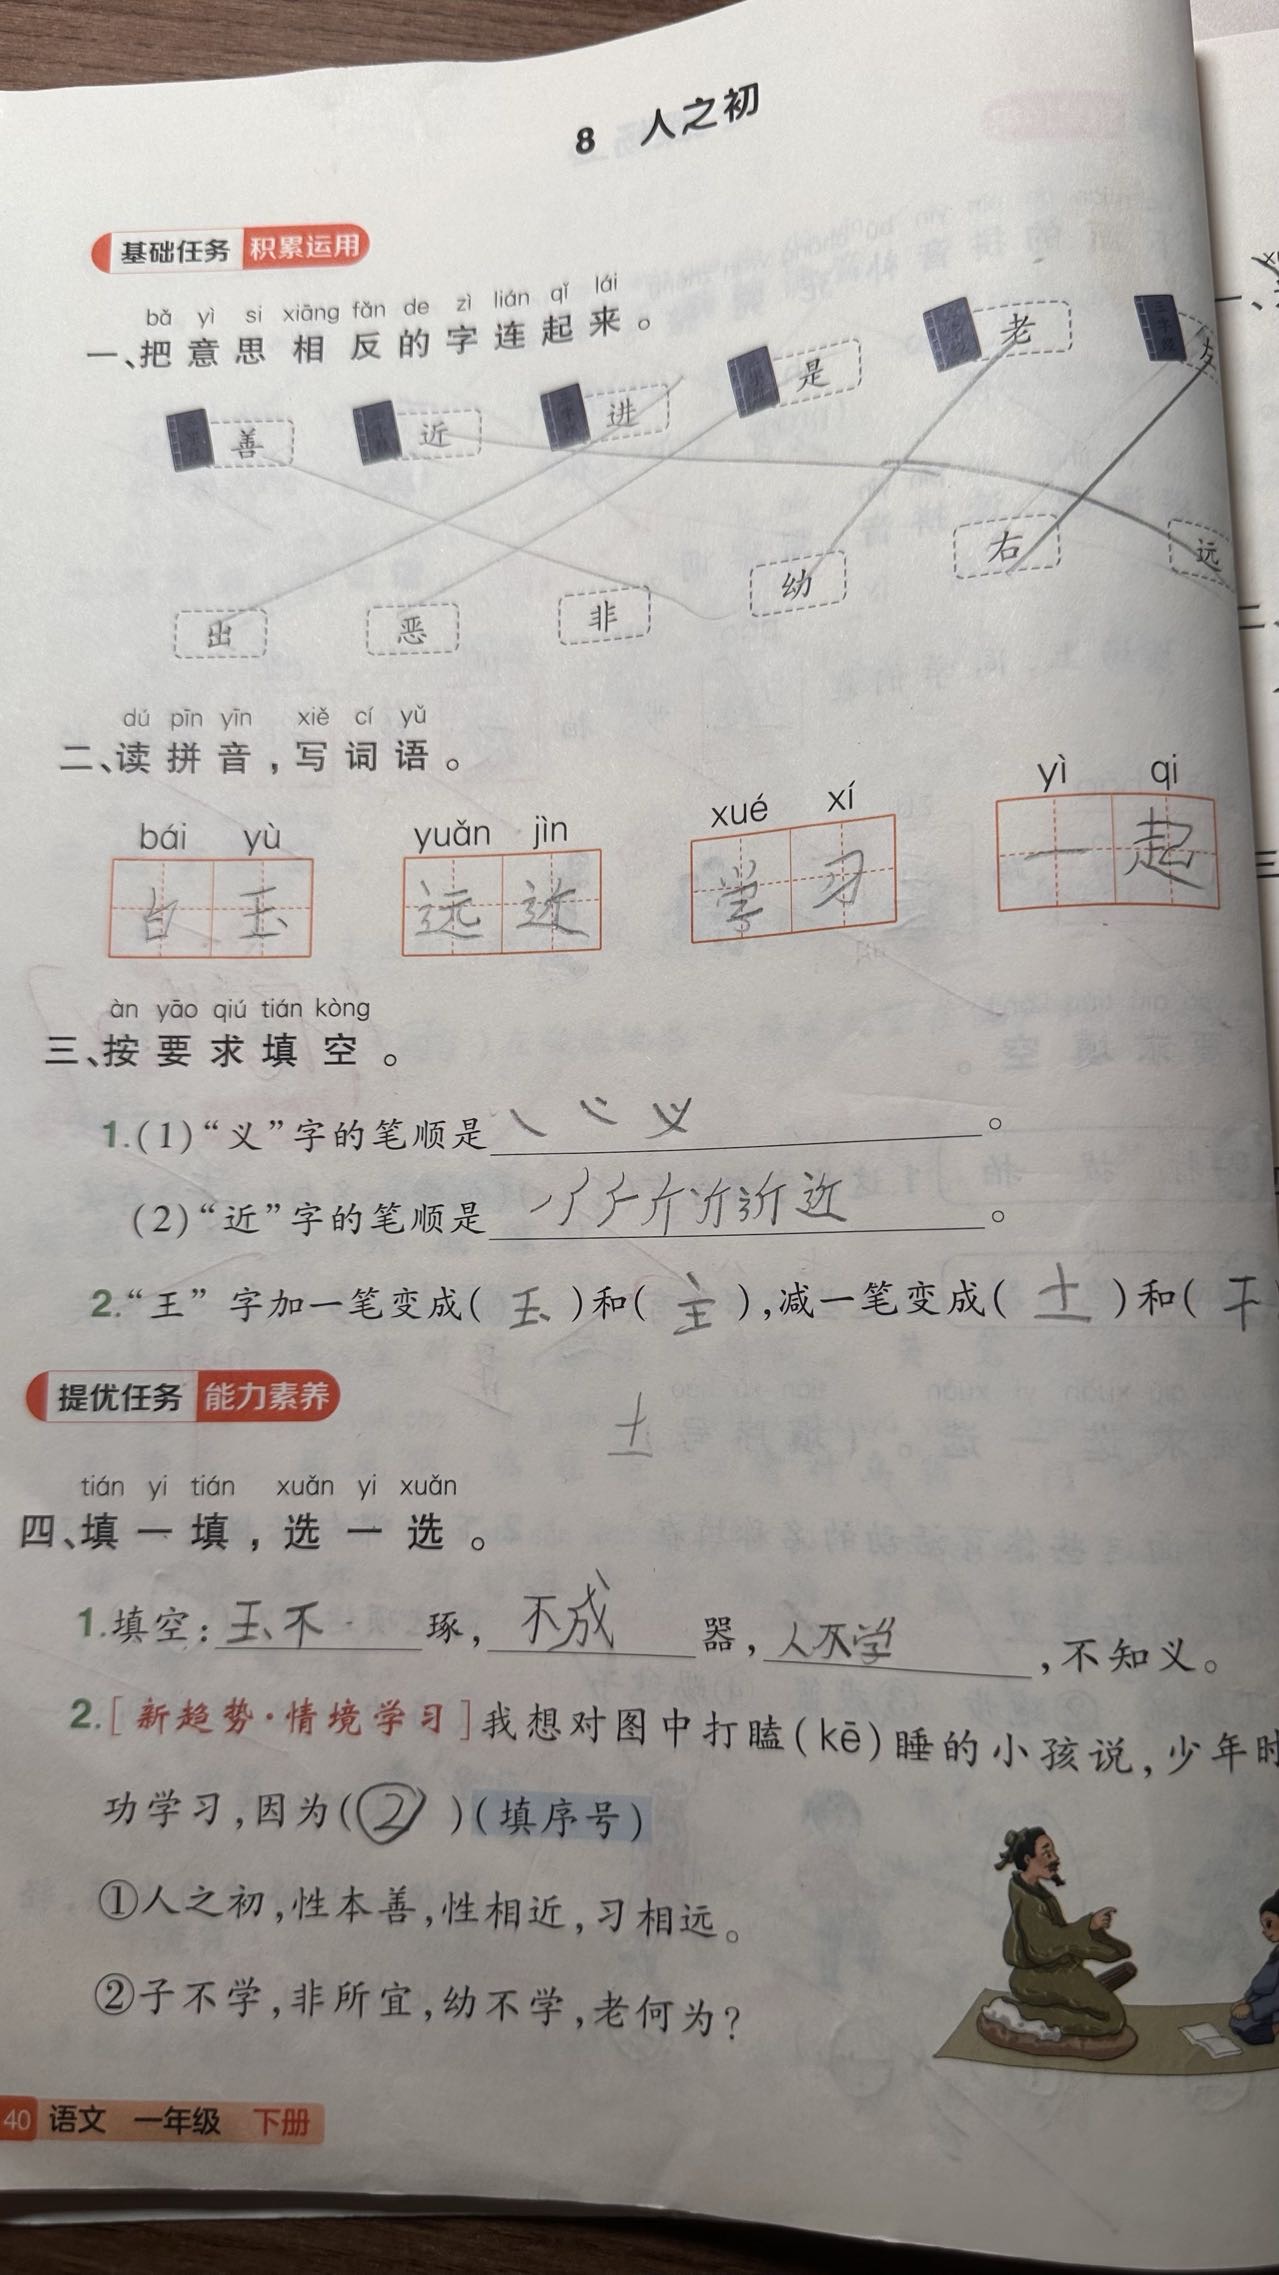 8 人之初
基础任务 积累运用
bǎ yì si xiāng fǎn de zì lián qǐ lái
一、把意思相反的字连起来。
善 近 进 是 老
出 恶 非 幼 右 远
dú pīn yīn xiě cí yǔ
二、读拼音，写词语。
bái yù yuǎn jìn xué xí yì qi
白玉 远近 学习 一起
àn yāo qiú tián kòng
三、按要求填空。
1.(1)“义”字的笔顺是丶 丷 义。
(2)“近”字的笔顺是 近。
2.“王”字加一笔变成(玉)和(主),减一笔变成(土)和(干
提优任务 能力素养
土
tián yi tián xuǎn yi xuǎn
四、填一填，选一选。
1.填空：玉不琢，不成器，人不学，不知义。
2.[新趋势·情境学习]我想对图中打瞌(kē)睡的小孩说，少年时
功学习，因为(②)(填序号)
①人之初，性本善，性相近，习相远。
②子不学，非所宜，幼不学，老何为?
40 语文 一年级 下册